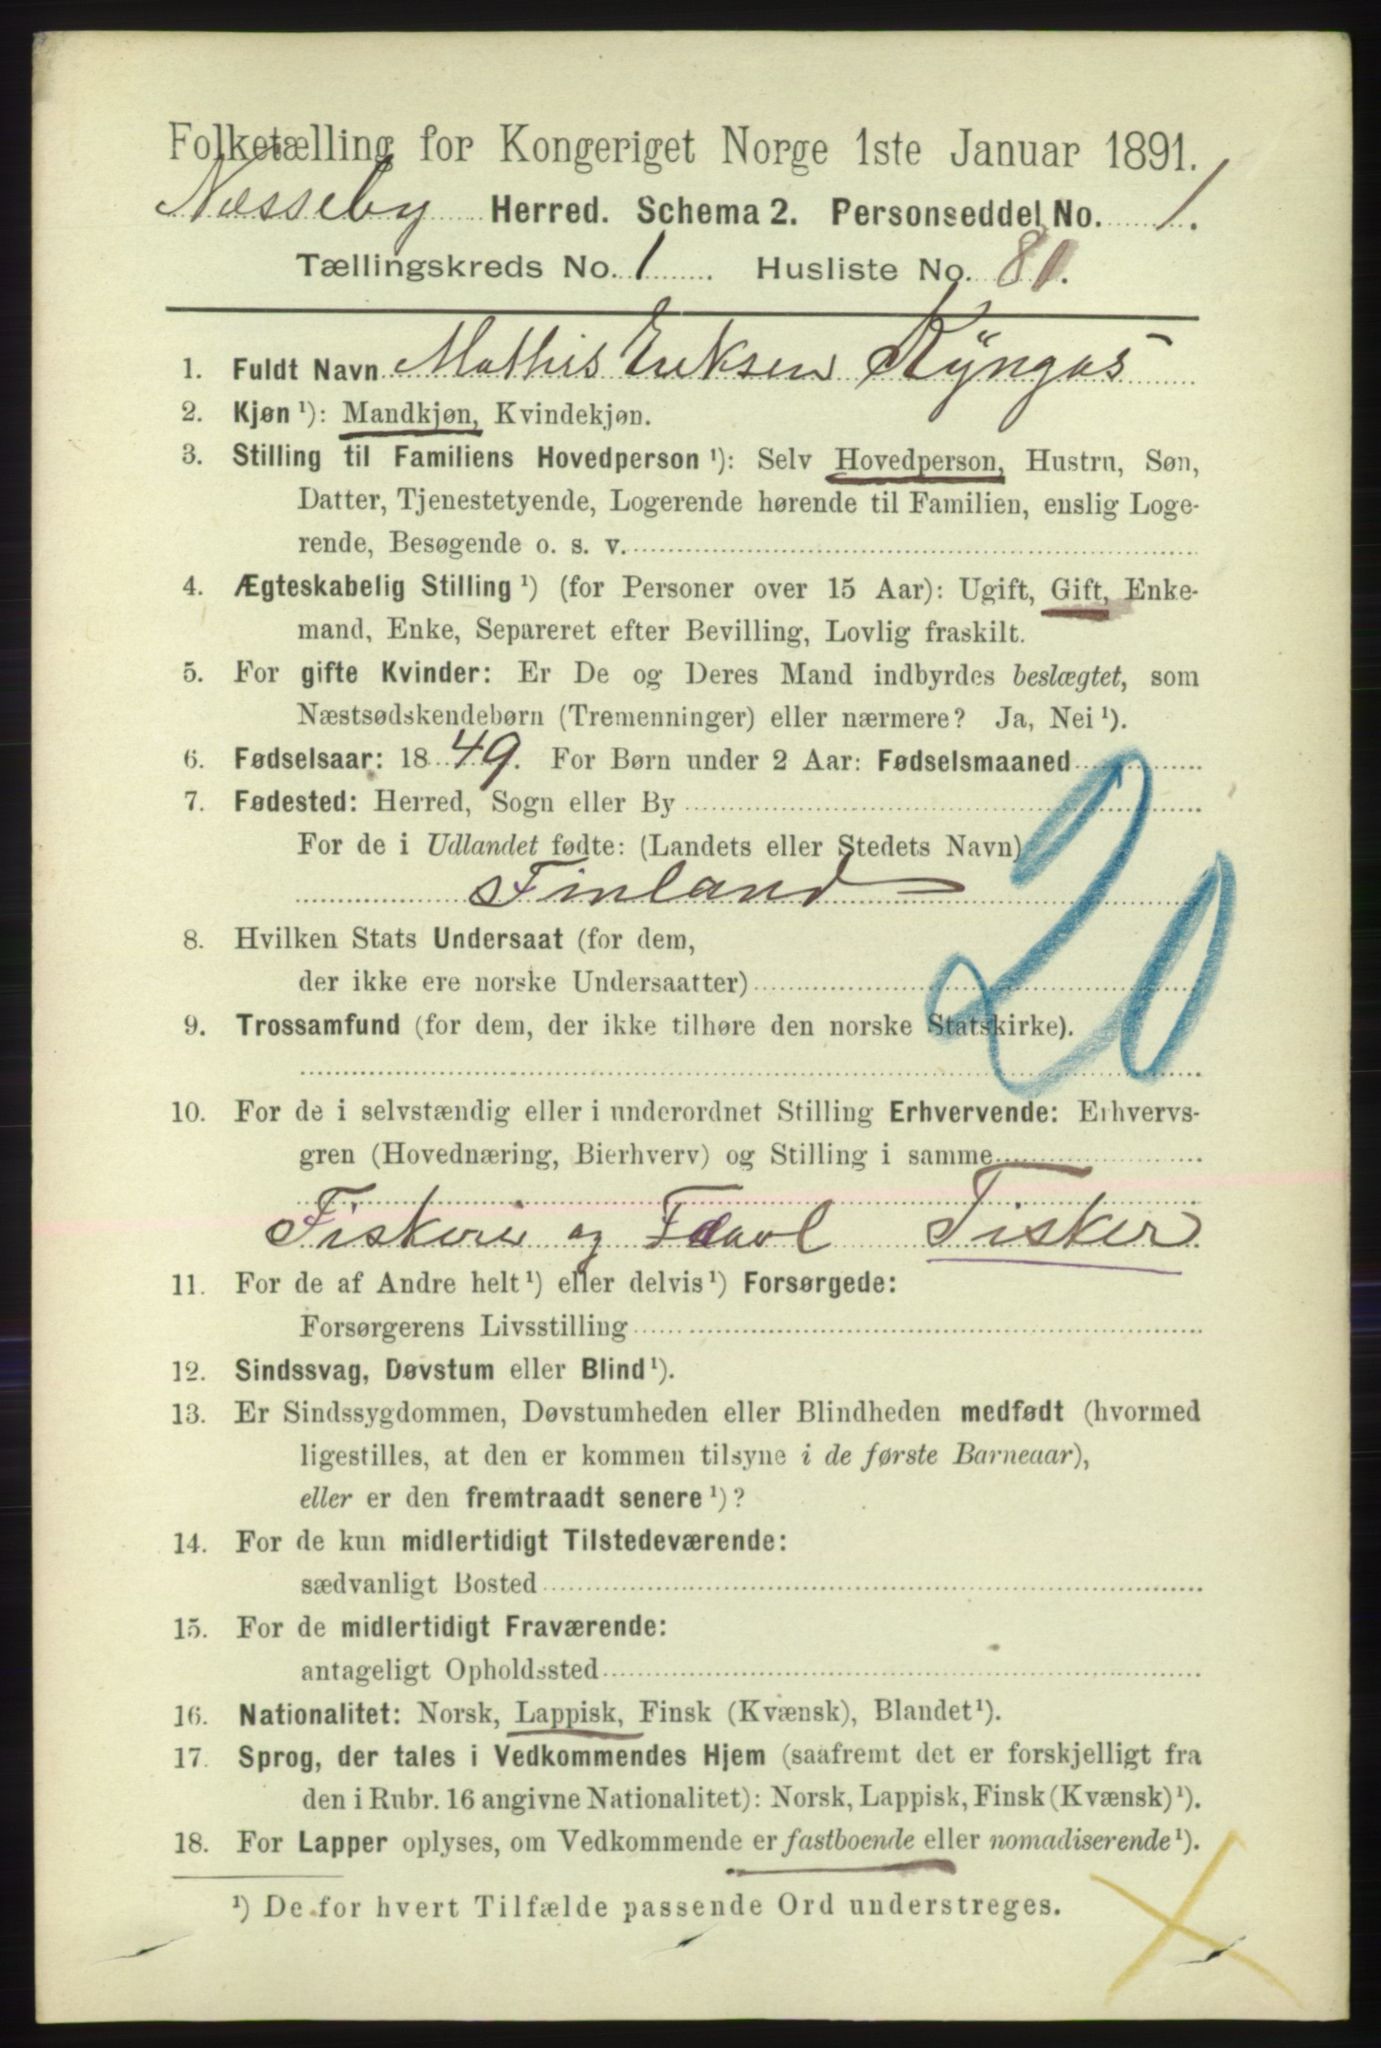 Folketælling for Kongeriget Norge 1ste Januar 1891.
Næsseby Herred. Schema 2. Personseddel No. 1.
Tællingskreds No. 1 Husliste No. 80.
1. Fuldt Navn Mathis Eriksen Kyngäs
2. Kjøn ¹): Mandkjøn, Kvindekjøn.
3. Stilling til Familiens Hovedperson ¹): Selv Hovedperson, Hustru, Søn,
Datter, Tjenestetyende, Logerende hørende til Familien, enslig Loge-
rende, Besøgende o. s. v.
4. Ægteskabelig Stilling ¹) (for Personer over 15 Aar): Ugift, Gift, Enke-
mand, Enke, Separeret efter Bevilling, Lovlig fraskilt.
5. For gifte Kvinder: Er De og Deres Mand indbyrdes beslægtet, som
Næstsødskendebørn (Tremenninger) eller nærmere? Ja, Nei ¹).
6. Fødselsaar: 1849. For Børn under 2 Aar: Fødselsmaaned
7. Fødested: Herred, Sogn eller By
For de i Udlandet fødte: (Landets eller Stedets Navn)
Finland
20
8. Hvilken Stats Undersaat (for dem,
der ikke ere norske Undersaatter)
9. Trossamfund (for dem, der ikke tilhøre den norske Statskirke).
10. For de i selvstændig eller i underordnet Stilling Erhvervende: Erhvervs-
gren (Hovednæring, Bierhverv) og Stilling i samme
Fiskeri og Fæavl Fisker
11. For de af Andre helt ¹) eller delvis ¹) Forsørgede:
Forsørgerens Livsstilling
12. Sindssvag, Døvstum eller Blind ¹).
13. Er Sindssygdommen, Døvstumheden eller Blindheden medfødt (hvormed
ligestilles, at den er kommen tilsyne i de første Barneaar),
eller er den fremtraadt senere ¹)?
14. For de kun midlertidigt Tilstedeværende:
sædvanligt Bosted
15. For de midlertidigt Fraværende:
antageligt Opholdssted
16. Nationalitet: Norsk, Lappisk, Finsk (Kvænsk), Blandet ¹).
17. Sprog, der tales i Vedkommendes Hjem (saafremt det er forskjelligt fra
den i Rubr. 16 angivne Nationalitet): Norsk, Lappisk, Finsk (Kvænsk) ¹).
18. For Lapper oplyses, om Vedkommende er fastboende eller nomadiserende ¹).
¹) De for hvert Tilfælde passende Ord understreges.